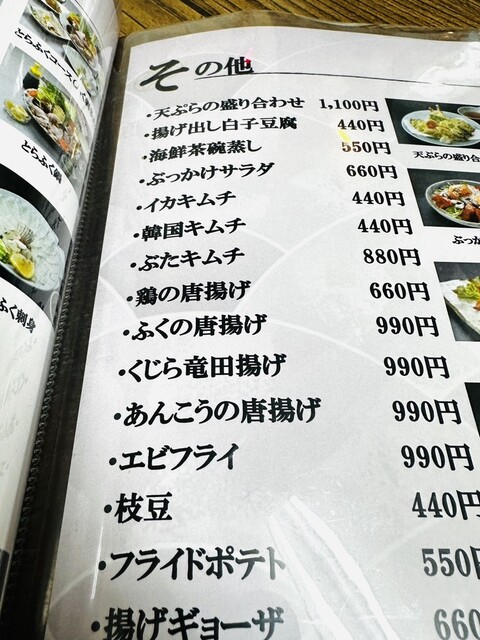 その他
・天ぷらの盛り合わせ 1,100円
・揚げ出し白子豆腐 440円
・海鮮茶碗蒸し 550円
・ぶっかけサラダ 660円
・イカキムチ 440円
・韓国キムチ 440円
・ぶたキムチ 880円
・鶏の唐揚げ 660円
・ふくの唐揚げ 990円
・くじら竜田揚げ 990円
・あんこうの唐揚げ 990円
・エビフライ 990円
・枝豆 440円
・フライドポテト 550円
・揚げギョーザ 660
とらふくコース
とらふく鍋
ふく刺身
天ぷらの盛り合
ぶっか